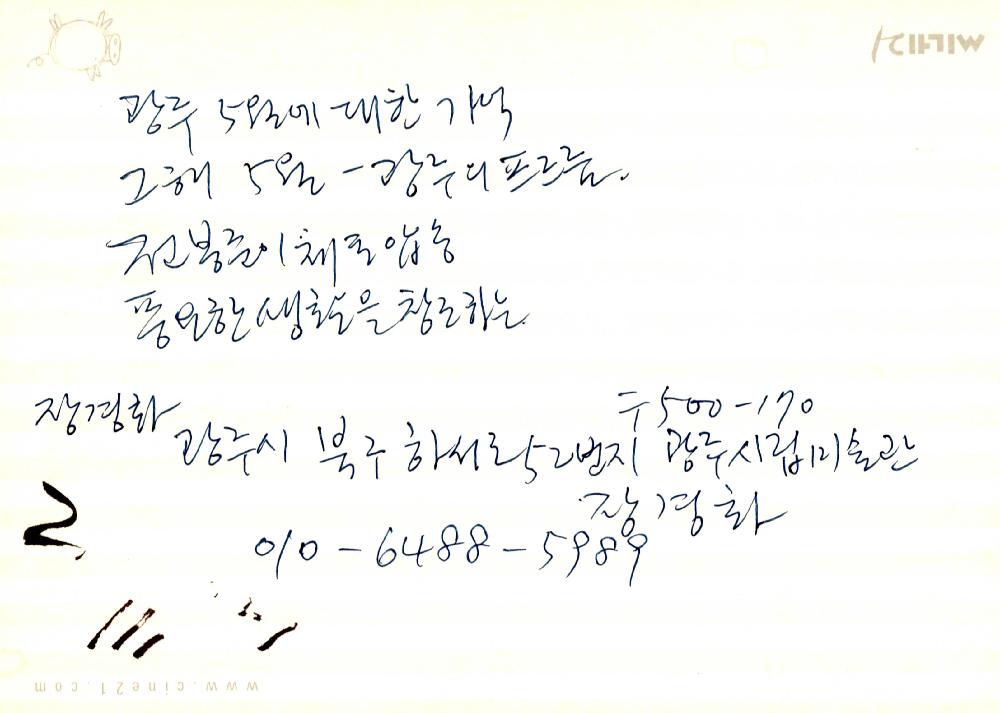 광주 5월에 대한 기억
그해 5월 - 광주의 푸르름.
전봉준이 체포 압송
풍요한 생활을 창조하는
장경화
우 500-170
광주시 북구 하서로 52번지 광주시립미술관
장경화
010-6488-5989
2
www.cine21.com